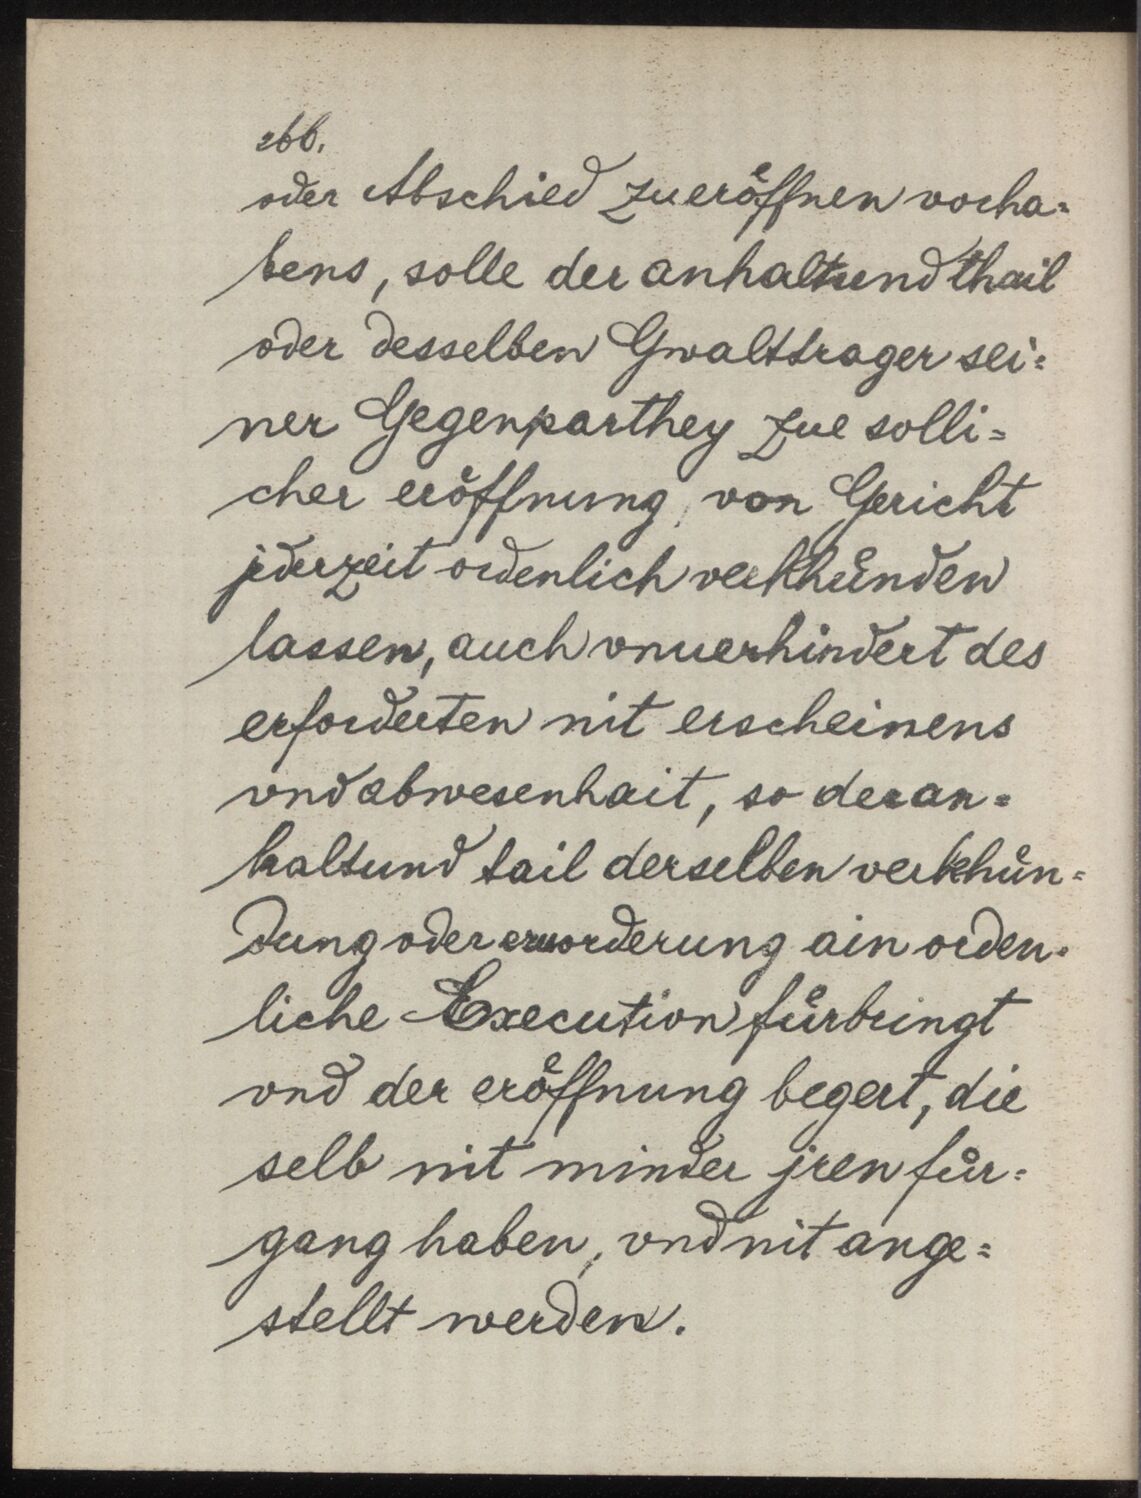 266.
oder Abschied zueröffnen vorha=
bens, solle der anhaltund thail
oder desselben Gwalttrager sei=
ner Gegenparthey zue solli=
cher eröffnung, von Gericht
jderzeit ordenlich verkhünden
lassen, auch vnuerhindert des
erforderten nit erscheinens
vnd abwesenhait, so der an=
haltund tail derselben verkhün=
dung oder eruorderung ain orden=
liche Execution fürbringt
vnd der eröffnung begert, die
selb nit minder jren für=
gang haben, vnd nit ange=
stellt werden.